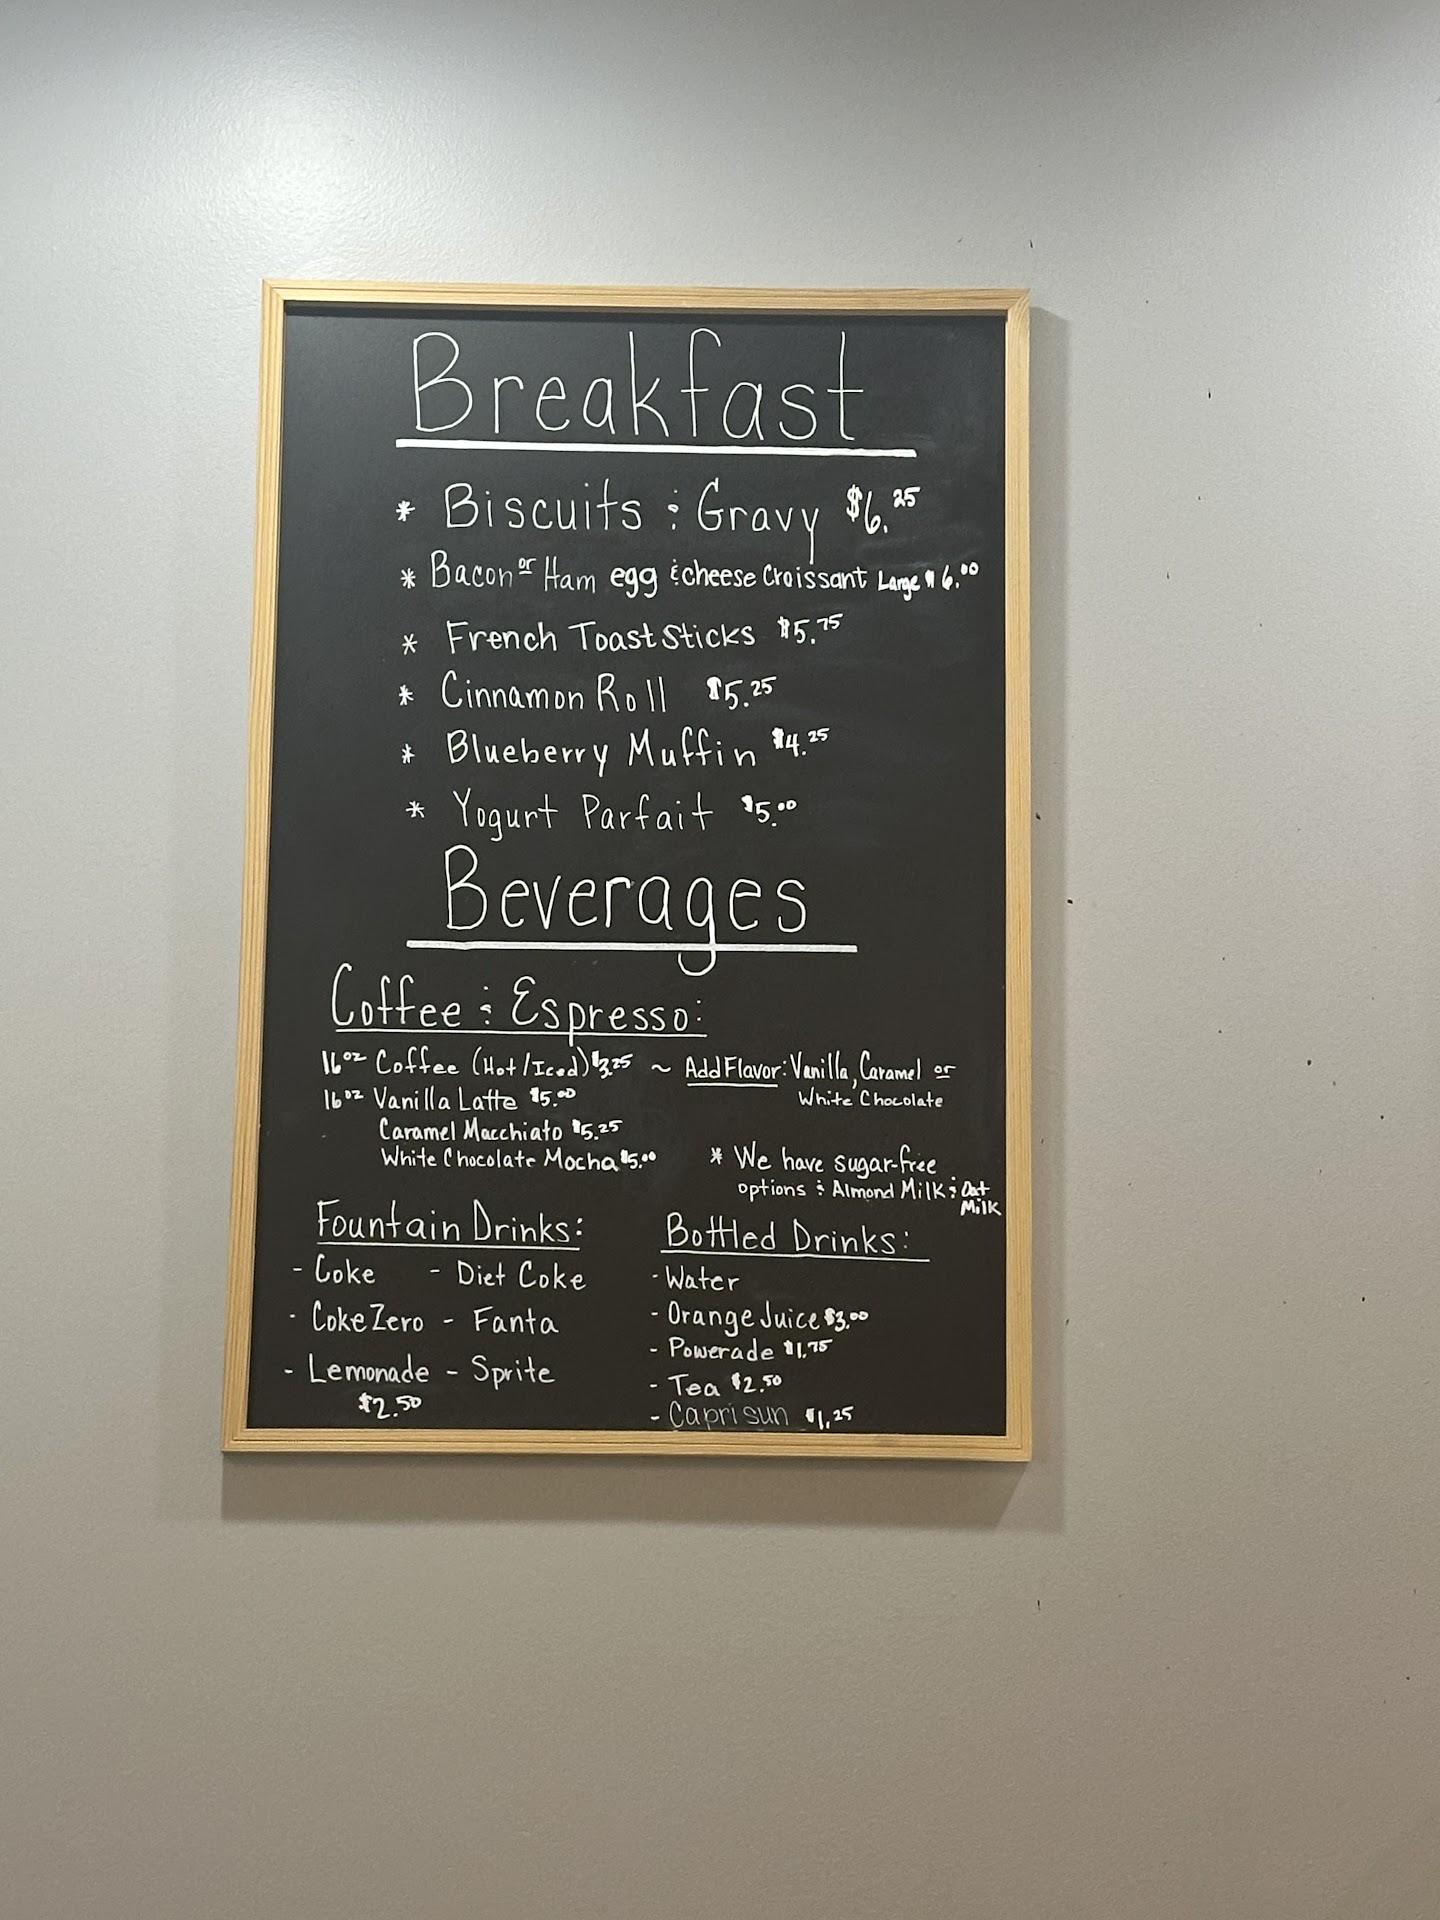 Breakfast
* Biscuits & Gravy $6.25
* Bacon or Ham egg & cheese Croissant Large $6.00
* French Toast Sticks $5.75
* Cinnamon Roll $5.25
* Blueberry Muffin $4.25
* Yogurt Parfait $5.00
Beverages
Coffee & Espresso:
16oz Coffee (Hot/Iced) $3.25 ~ Add Flavor: Vanilla, Caramel or
White Chocolate
16oz Vanilla Latte $5.00
Caramel Macchiato $5.25
White Chocolate Mocha $5.00
* We have sugar-free
options & Almond Milk & Oat
Milk
Fountain Drinks:
- Coke - Diet Coke
- Coke Zero - Fanta
- Lemonade - Sprite
$2.50
Bottled Drinks:
- Water
- Orange Juice $3.00
- Powerade $1.75
- Tea $2.50
- Capri sun $1.25